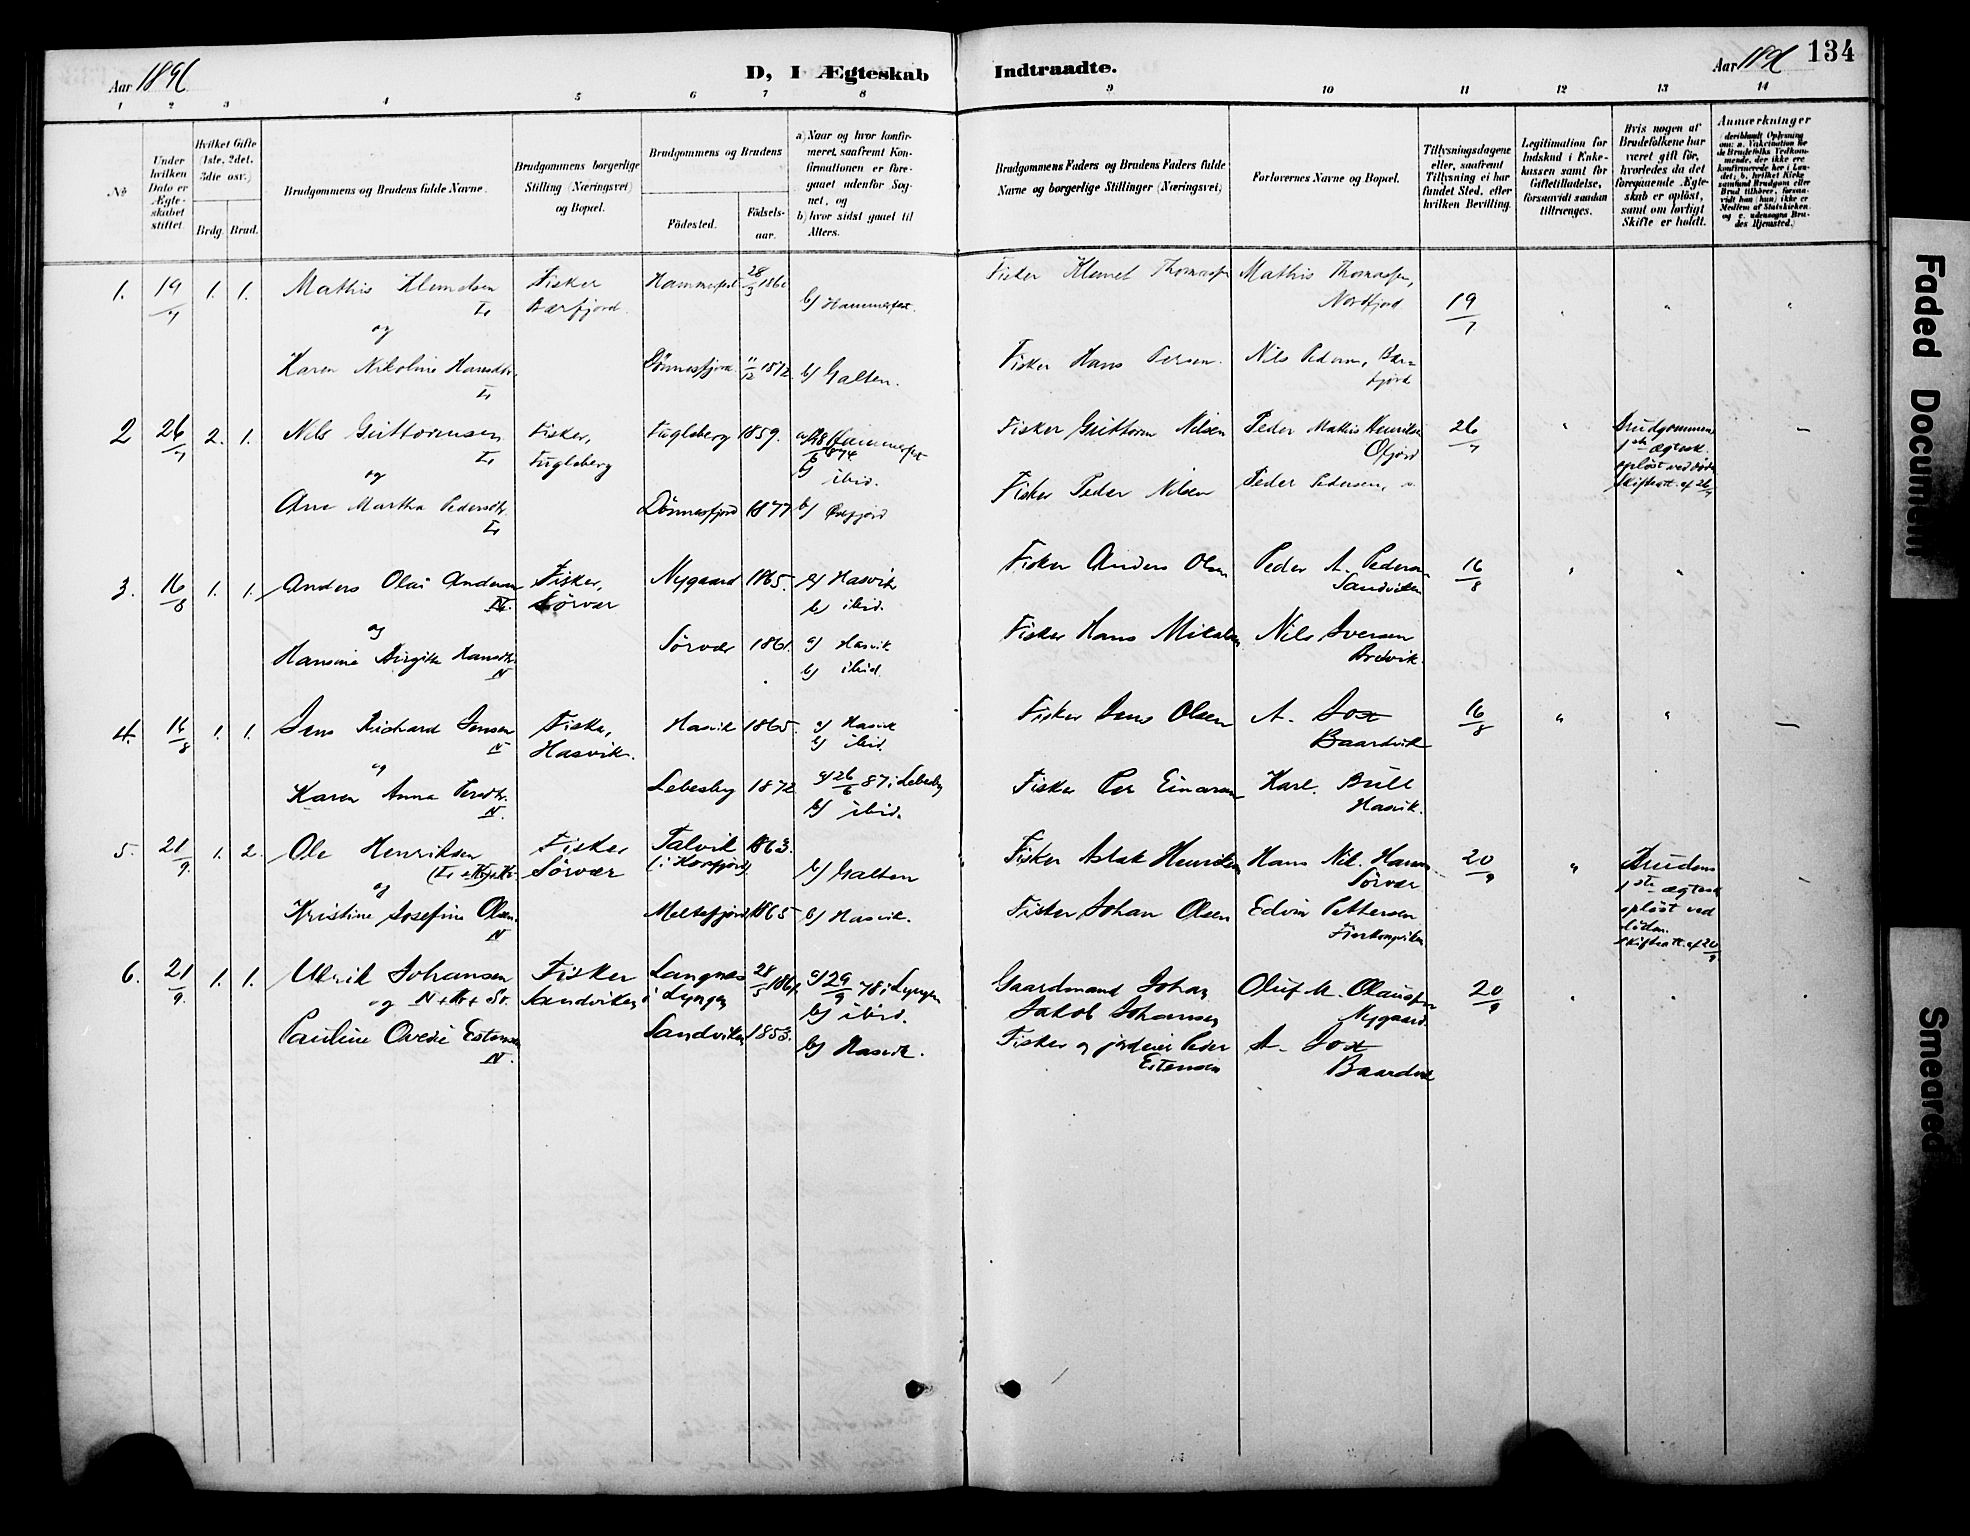 Aar 1896
D, I Ægteskab Indtraadte.
Aar 1896
134
1 2 3 4 5 6 7 8 9 10 11 12 13 14
№
Under hvilken Dato er Ægteskabet stiftet
Hvilket Gifte (1ste, 2det, 3die osv.)
Brdg. Brud.
Brudgommens og Brudens fulde Navne.
Brudgommens borgerlige Stilling (Næringsvei) og Bopæl.
Brudgommens og Brudens
Födested.
Födselsaar.
a) Naar og hvor konfirmeret, saafremt Konfirmationen er foregaaet udenfor Sognet, og
b) hvor sidst gaaet til Alters.
Brudgommens Faders og Brudens Faders fulde Navne og borgerlige Stillinger (Næringsvei)
Forlovernes Navne og Bopæl.
Tillysningsdagene eller, saafremt Tillysning ei har fundet Sted, efter hvilken Bevilling.
Legitimation for Indskud i Enkekassen samt for Giftetilladelse, forsaavidt saadan tiltrænges.
Hvis nogen af Brudefolkene har været gift för, hvorledes da det foregaaende Ægteskab er oplöst, samt om lovligt Skifte er holdt.
Anmærkninger
1. 19/7 1. 1. Mathis Klemetsen Fisker Hammerfest 28/3 186 b) Hammerfest. Fisker Klemet Thomassen Mathis Thomassen, Nordfjord 19/7
L.
og
Karen Nikoline Hansdtr. Dönnesfjord 11/12 1872. b) Galten. Fisker Hans Persen. Nils Pedersen, Bærfjord
L.
2 26/7 2. 1. Nils Guttormsen Fisker, Fuglsberg Fuglsberg 1859. a) Hammerfest b) ibid. Fisker Guttorm Nilsen Peder Mathis Henriksen Ofjord 26/7 Brudgommens 1ste Ægtesk. oplöst ved död. Skifteatt. af 26/7
L.
og
Ane Martha Pedersdtr. Dönnesfjord 1877 b) Fisker Peder Nilsen Peder Pedersen,
L.
3. 16/8 1. 1. Anders Olai Andersen Fisker, Sörvær Nygaard 1865. a) Hasvik b) ibid. Fisker Anders Olsen Peder A. Pedersen Sandviken 16/8
N.
og
Hansine Birgitte Hansdtr. Sörvær 1861. a) Hasvik b) ibid. Fisker Hans Mikalsen Nils Iversen Bredvik.
N
4. 16/8 1. 1. Jens Richard Jensen Fisker, Hasvik. Hasvik 1865. a) Hasvik b) ibid. Fisker Jens Olsen A. Fox Baardvik 16/8
N
og
Karen Anna Persdtr. Lebesby 1872 a) 26/6 87 i Lebesby b) ibid. Fisker Per Einarsen Karl Bull Hasvik.
N.
5. 21/9. 1. 2. Ole Henriksen Fisker Sörvær Talvik (i Korsfjord) 1863. b) Galten Fisker Aslak Henriksen Hans Nil. Hansen Sörvær 20/9 Brudens 1ste Ægtesk. oplöst ved döden. Skifteatt. af 20/9
og
Kristine Josefine Olsen. Meltefjord 1865 b) Hasvik. Fisker Johan Olsen Edvin Pettersen
N
6. 21/9. 1. 1. Ulrik Johansen Fisker Sandviken Langnes i Lyngen 28/5 1861. a) 29/9 78 i Lyngen b) ibid. Gaardmand Johan Jakob Johansen Oluf M. Olaussen Nygaard. 20/9
og
Pauline Ovedie Estensen Sandviken 1853. b) Hasvik. Fisker og jordeier Peder Estensen A. Fox Baardvik
N.
Faded Document
Smeared